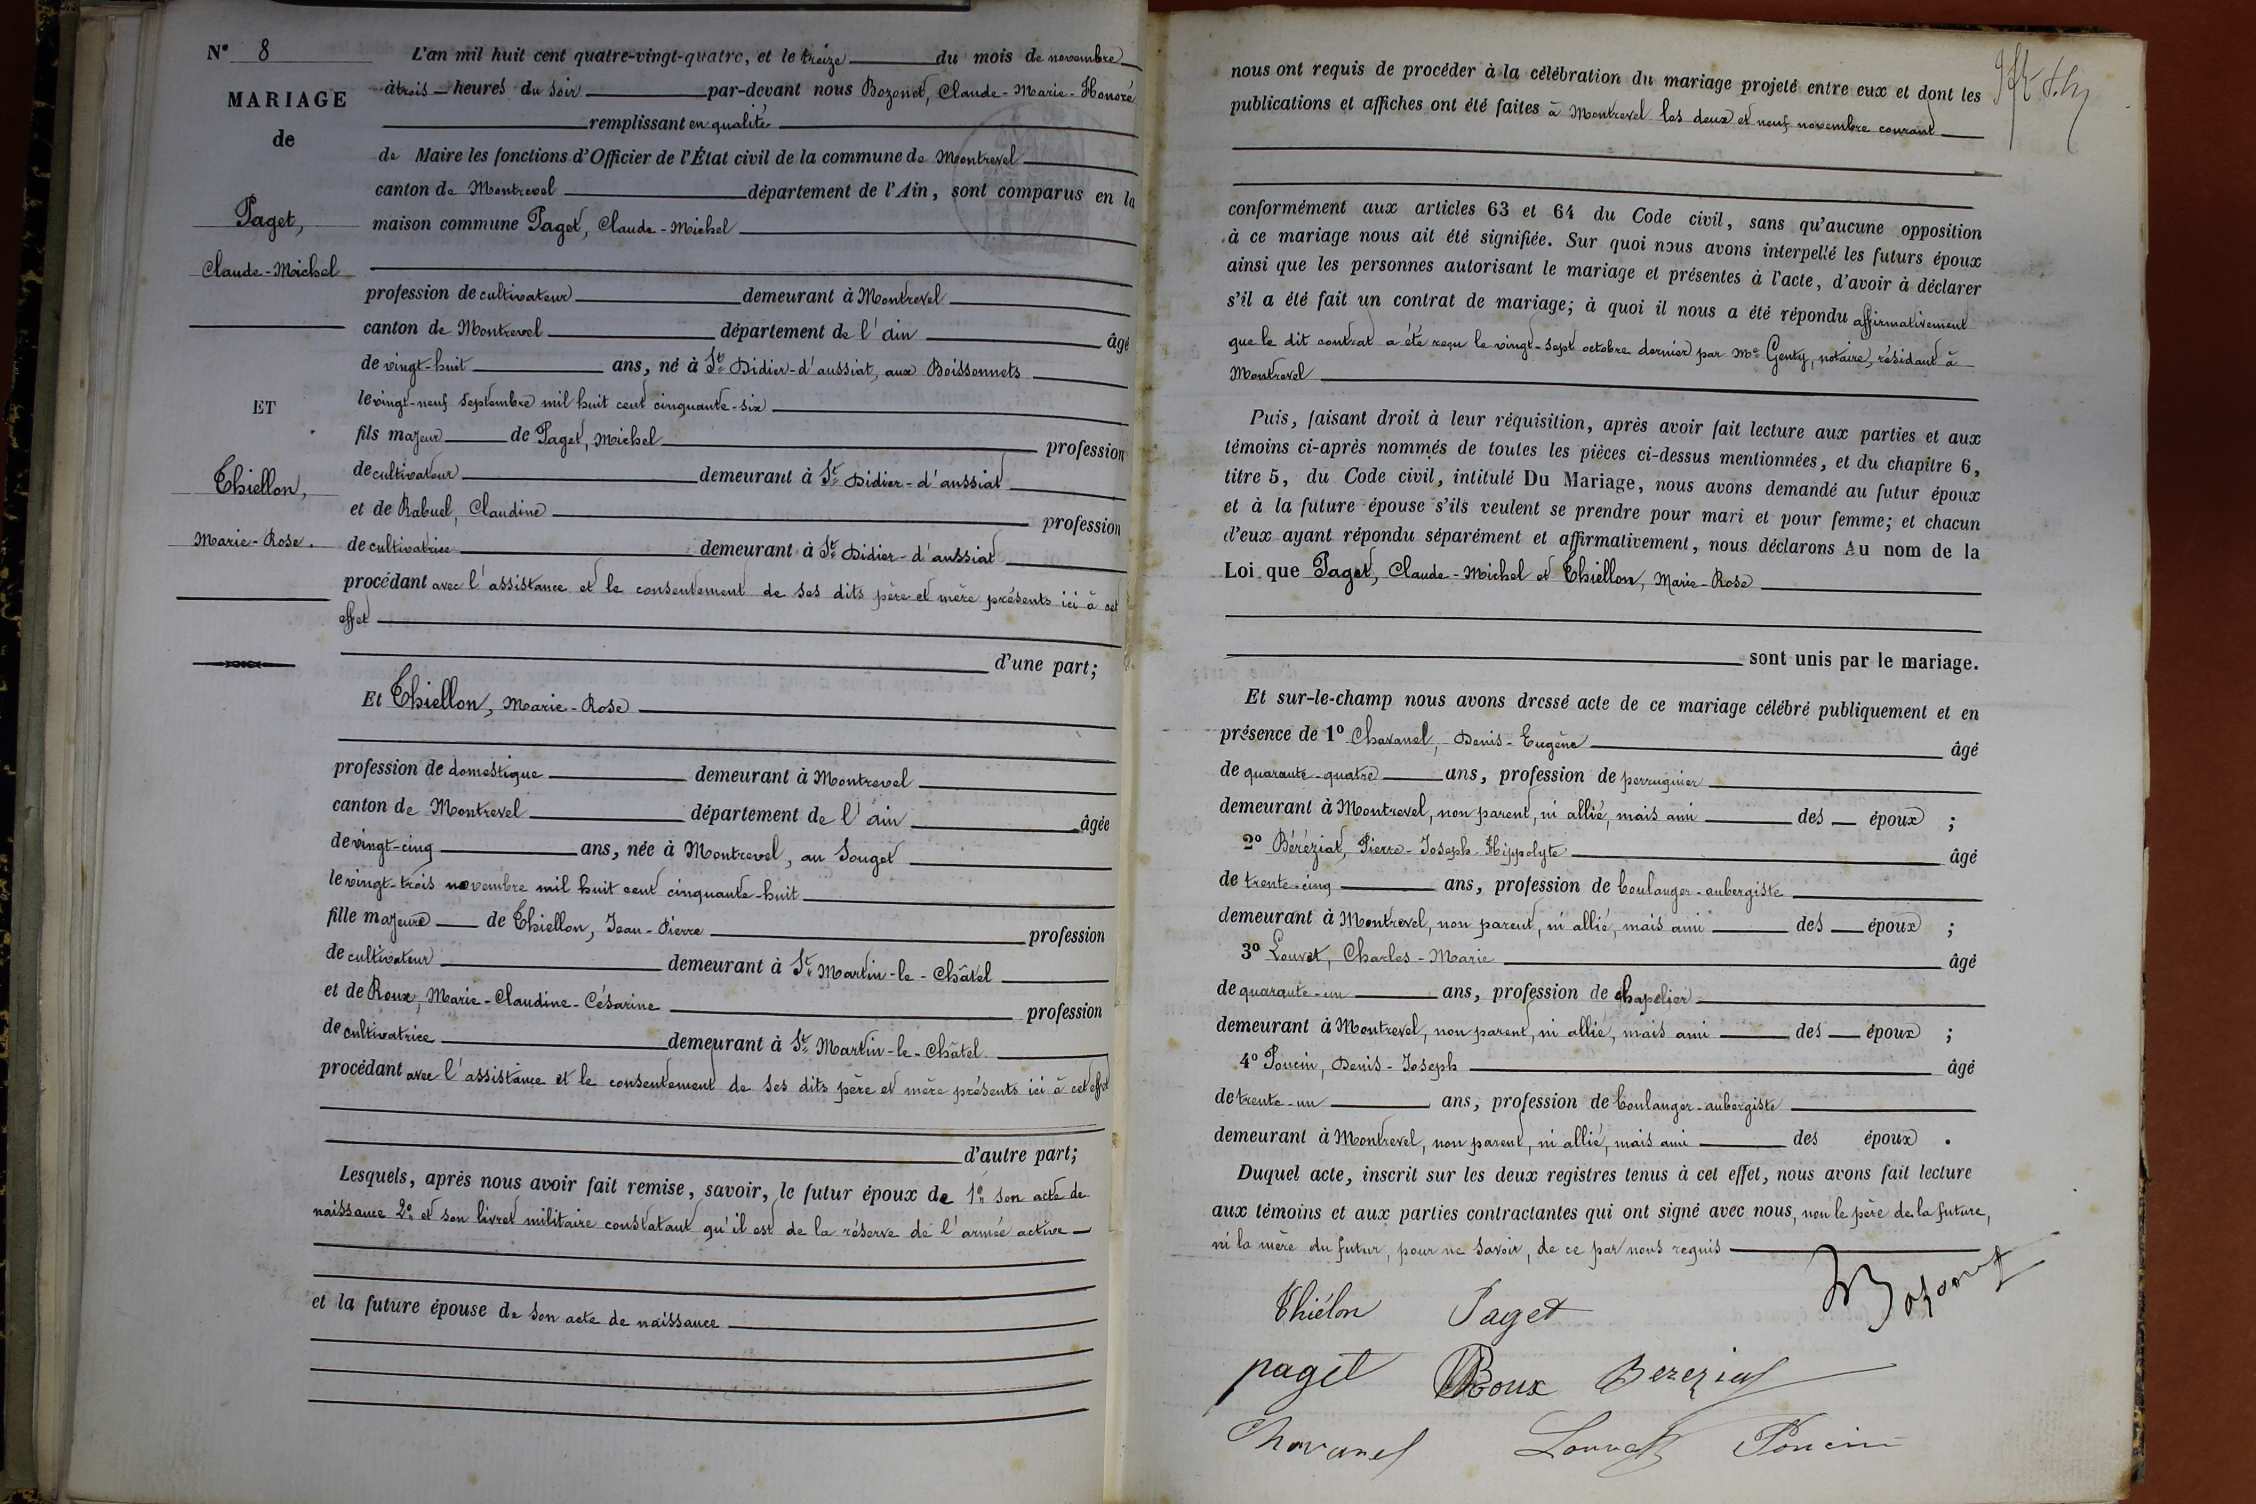 N° 8
MARIAGE
de
Paget,
Claude-Michel
ET
Thiellon,
Marie-Rose.
L'an mil huit cent quatre-vingt-quatre, et le treize du mois de novembre
à trois heures du soir par-devant nous Bozonet, Claude-Marie-Honoré
remplissant en qualité
de Maire les fonctions d'Officier de l'État civil de la commune de Montrevel
canton de Montrevel département de l'Ain, sont comparus en la
maison commune Paget, Claude-Michel
profession de cultivateur demeurant à Montrevel
canton de Montrevel département de l'ain âgé
de vingt-huit ans, né à St Didier-d'aussiat, aux Boissonnets
le vingt-neuf septembre mil huit cent cinquante-six
fils majeur de Paget, Michel profession
de cultivateur demeurant à St Didier-d'aussiat
et de Rabuel, Claudine profession
de cultivatrice demeurant à St Didier-d'aussiat
procédant avec l'assistance et le consentement de ses dits père et mère présents ici à cet
effet
d'une part;
Et Thiellon, Marie-Rose
profession de domestique demeurant à Montrevel
canton de Montrevel département de l'ain âgée
de vingt-cinq ans, née à Montrevel, au Souget
le vingt-trois novembre mil huit cent cinquante-huit
fille majeure de Thiellon, Jean-Pierre profession
de cultivateur demeurant à St Martin-le-Châtel
et de Roux, Marie-Claudine-Césarine profession
de cultivatrice demeurant à St Martin-le-Châtel
procédant avec l'assistance et le consentement de ses dits père et mère présents ici à cet effet
d'autre part;
Lesquels, après nous avoir fait remise, savoir, le futur époux de 1° son acte de
naissance 2° et son livret militaire constatant qu'il est de la réserve de l'armée active
et la future épouse de son acte de naissance
nous ont requis de procéder à la célébration du mariage projeté entre eux et dont les
publications et affiches ont été faites à Montrevel les deux et neuf novembre courant
conformément aux articles 63 et 64 du Code civil, sans qu'aucune opposition
à ce mariage nous ait été signifiée. Sur quoi nous avons interpellé les futurs époux
ainsi que les personnes autorisant le mariage et présentes à l'acte, d'avoir à déclarer
s'il a été fait un contrat de mariage; à quoi il nous a été répondu affirmativement
que le dit contrat a été reçu le vingt-sept octobre dernier par Me Genty, notaire, résidant à
Montrevel
Puis, faisant droit à leur réquisition, après avoir fait lecture aux parties et aux
témoins ci-après nommés de toutes les pièces ci-dessus mentionnées, et du chapitre 6,
titre 5, du Code civil, intitulé Du Mariage, nous avons demandé au futur époux
et à la future épouse s'ils veulent se prendre pour mari et pour femme; et chacun
d'eux ayant répondu séparément et affirmativement, nous déclarons Au nom de la
Loi que Paget, Claude-Michel et Thiellon, Marie-Rose
sont unis par le mariage.
Et sur-le-champ nous avons dressé acte de ce mariage célébré publiquement et en
présence de 1° Chavanel, Denis-Eugène âgé
de quarante-quatre ans, profession de perruquier
demeurant à Montrevel, non parent, ni allié, mais ami des époux ;
2° Béréziat, Pierre-Joseph-Hippolyte âgé
de trente-cinq ans, profession de boulanger-aubergiste
demeurant à Montrevel, non parent, ni allié, mais ami des époux ;
3° Louvet, Charles-Marie âgé
de quarante-un ans, profession de chapelier
demeurant à Montrevel, non parent, ni allié, mais ami des époux ;
4° Poncin, Denis-Joseph âgé
de trente-un ans, profession de boulanger-aubergiste
demeurant à Montrevel, non parent, ni allié, mais ami des époux .
Duquel acte, inscrit sur les deux registres tenus à cet effet, nous avons fait lecture
aux témoins et aux parties contractantes qui ont signé avec nous, non le père de la future,
ni la mère du futur, pour ne savoir, de ce par nous requis
Thiélon Paget Bozonet
paget Roux Bereziat
Chavanel Louvet Poncin